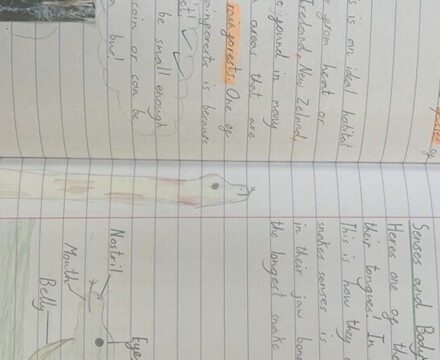 of
s is an ideal habitat
from heat or
Ireland, New Zeland,
e found in many
n areas that are
rainforests. One of
ainforests is because
ct!
be small enough
coin or can be
bus!
Senses and Body
Heres one of th
their tongues. In
This is how they
snakes senses is
in their jaw bone
the longest snake
Eye
Nostril
Mouth
Belly